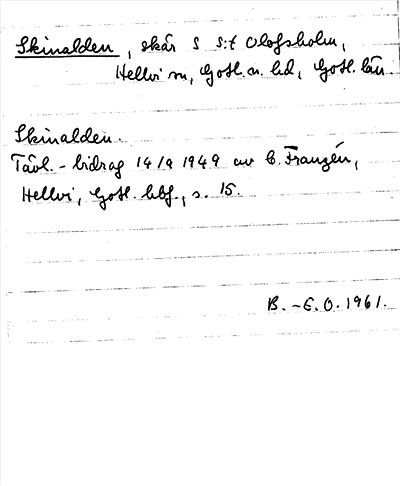 Skinalden, skär S S:t Olofsholm,
Hellvi sn, Gotl. n. hd, Gotl. län.
Skinalden.
Tävl.-bidrag 14/9 1949 av C. Franzén,
Hellvi, Gotl. hbf., s. 15.
B.-E.O. 1961.